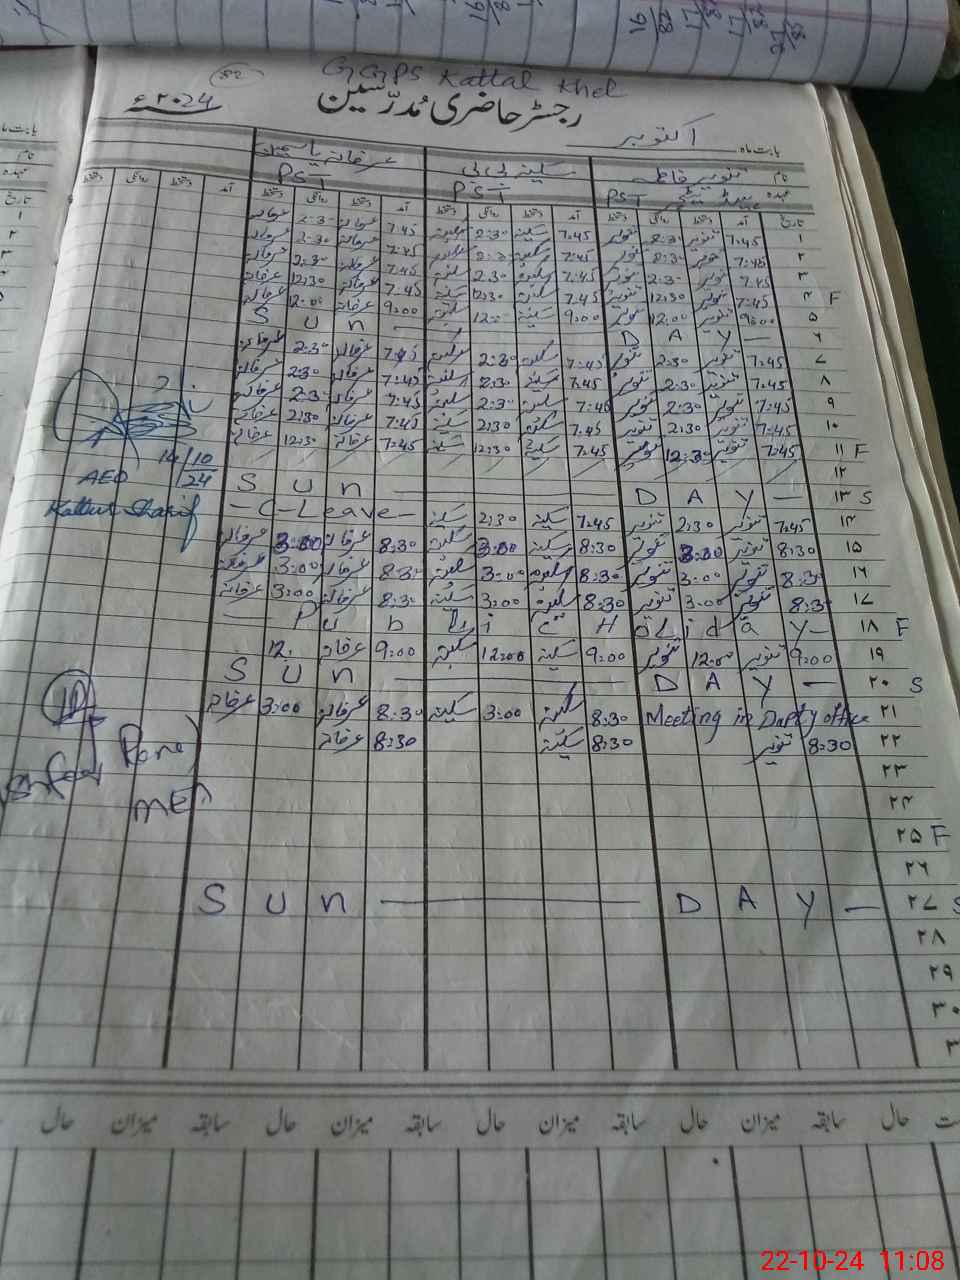 GGPS Kattal Khel
رجسٹر حاضری مُدرّسین
۲۰24ء
بابت ماہ اکتوبر
نام تنویر فاطمہ سکینہ بی بی عرفانہ یاسمین
عہدہ PST PST PST
تاریخ آمد دستخط روانگی دستخط آمد دستخط روانگی دستخط آمد دستخط روانگی دستخط آمد دستخط روانگی دستخط
۱ 7:45 تنویر 2:30 تنویر 7:45 سکینہ 2:30 سکینہ 7:45 عرفانہ 2:30 عرفانہ
۲ 7:45 تنویر 2:30 تنویر 7:45 سکینہ 2:30 سکینہ 7:45 عرفانہ 2:30 عرفانہ
۳ 7:45 تنویر 2:30 تنویر 7:45 سکینہ 2:30 سکینہ 7:45 عرفانہ 2:30 عرفانہ
۴ F 7:45 تنویر 12:30 تنویر 7:45 سکینہ 12:30 سکینہ 7:45 عرفانہ 12:30 عرفانہ
۵ 9:00 تنویر 12:00 تنویر 9:00 سکینہ 12:00 سکینہ 9:00 عرفانہ 12:00 عرفانہ
۶ SUN — DAY —
۷ 7:45 تنویر 2:30 تنویر 7:45 سکینہ 2:30 سکینہ 7:45 عرفانہ 2:30 عرفانہ
۸ 7:45 تنویر 2:30 تنویر 7:45 سکینہ 2:30 سکینہ 7:45 عرفانہ 2:30 عرفانہ
۹ 7:45 تنویر 2:30 تنویر 7:45 سکینہ 2:30 سکینہ 7:45 عرفانہ 2:30 عرفانہ
۱۰ 7:45 تنویر 2:30 تنویر 7:45 سکینہ 2:30 سکینہ 7:45 عرفانہ 2:30 عرفانہ
۱۱ F 7:45 تنویر 12:30 تنویر 7:45 سکینہ 12:30 سکینہ 7:45 عرفانہ 12:30 عرفانہ
۱۲
۱۳ S SUN — DAY —
۱۴ 7:45 تنویر 2:30 تنویر 7:45 سکینہ 2:30 سکینہ — C-Leave —
۱۵ 8:30 تنویر 3:00 تنویر 8:30 سکینہ 3:00 سکینہ 8:30 عرفانہ 3:00 عرفانہ
۱۶ 8:30 تنویر 3:00 تنویر 8:30 سکینہ 3:00 سکینہ 8:30 عرفانہ 3:00 عرفانہ
۱۷ 8:30 تنویر 3:00 تنویر 8:30 سکینہ 3:00 سکینہ 8:30 عرفانہ 3:00 عرفانہ
۱۸ F — Public Holiday —
۱۹ 9:00 تنویر 12:00 تنویر 9:00 سکینہ 12:00 سکینہ 9:00 عرفانہ 12:
۲۰ S SUN — DAY —
۲۱ Meeting in Dapty office 8:30 سکینہ 3:00 سکینہ 8:30 عرفانہ 3:00 عرفانہ
۲۲ 8:30 تنویر 8:30 سکینہ 8:30 عرفانہ
۲۳
۲۴
۲۵ F
۲۶
۲۷ S SUN — DAY —
۲۸
۲۹
۳۰
14/10/24
AEO
MEA
حال سابقہ میزان حال سابقہ میزان حال سابقہ میزان حال سابقہ میزان حال
22-10-24 11:08